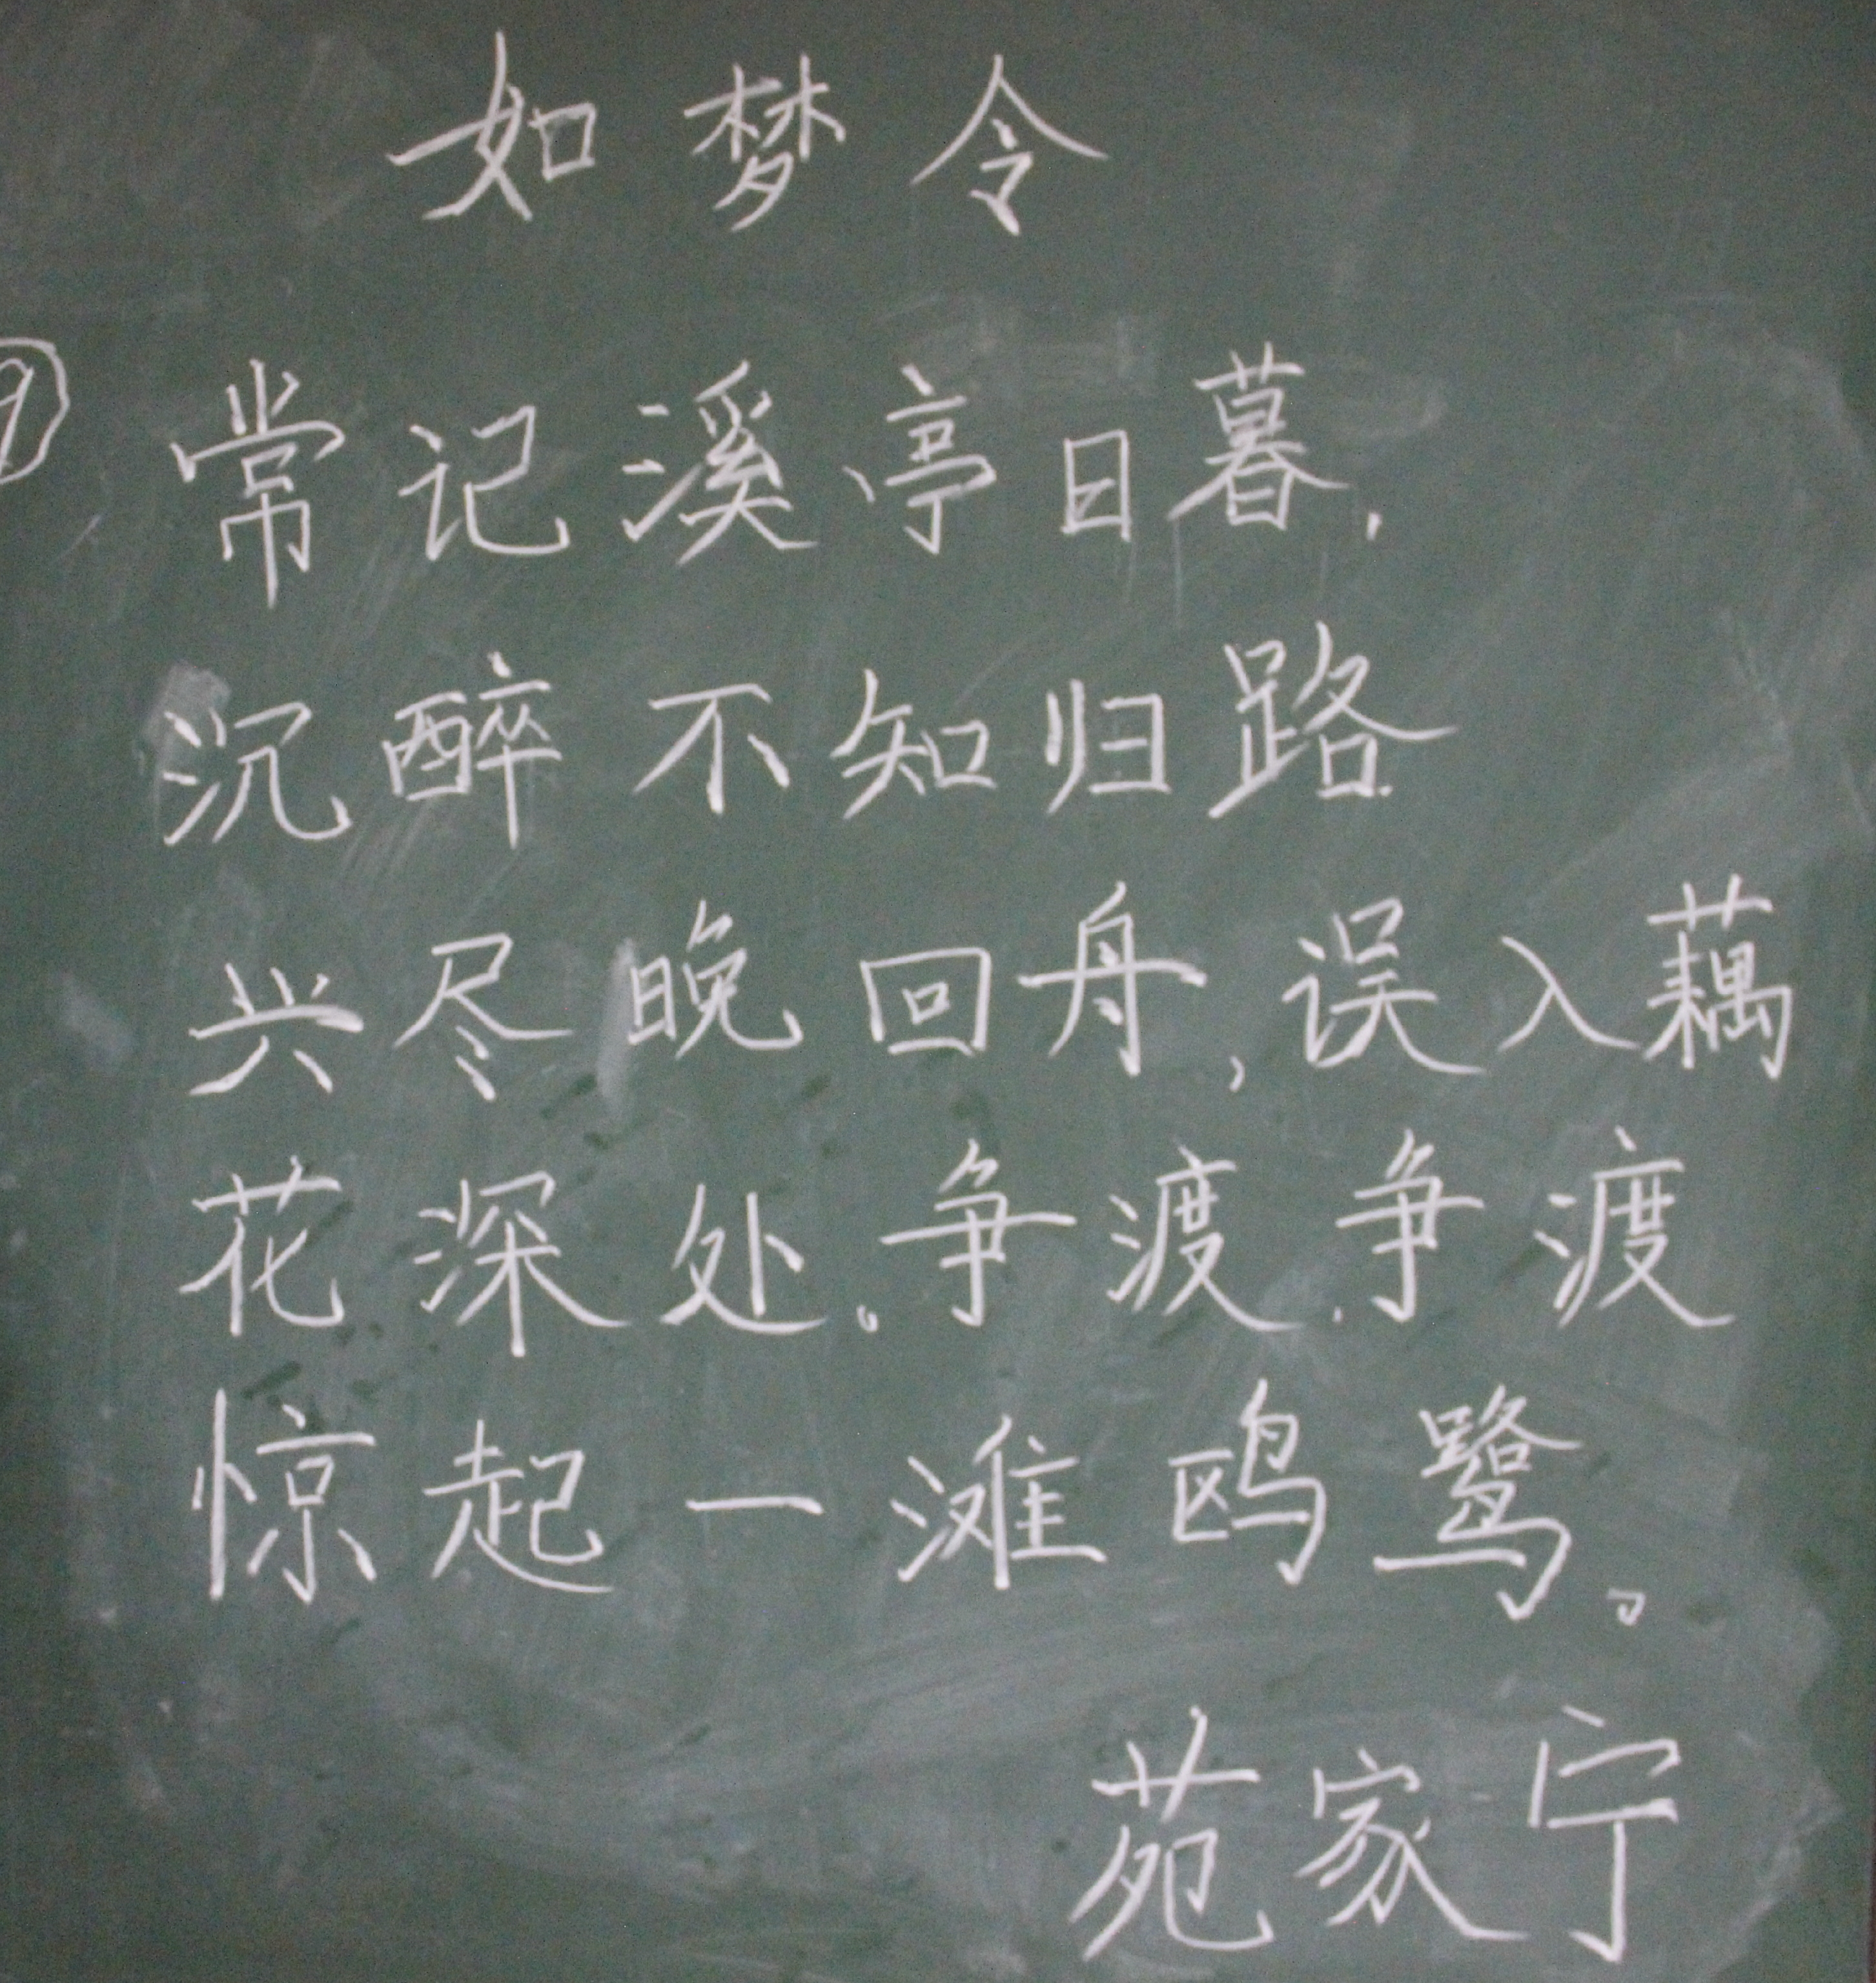 如梦令
⑨ 常记溪亭日暮,
沉醉不知归路
兴尽晚回舟,误入藕
花深处。争渡.争渡
惊起一滩鸥鹭。
苑家宁